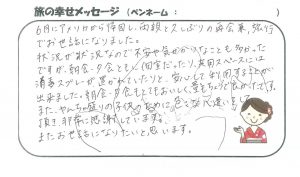 旅の幸せメッセージ （ペンネーム： ）
6月にアメリカから帰国し、両親と久しぶりの再会兼、旅行
でお世話になりました。
状況が状況なので不安や気がかりなことも多かった
ですが、朝食・夕食ともに個室だったり、共同スペースには
消毒スプレーが置かれていたりと、安心して利用することが
出来ました。朝食・夕食もとてもおいしく量もちょうど良かったです。
また、やんちゃ盛りの子供のために色々な心遣いをして
頂き、非常に感謝しています。
またお世話になりたいと思います。